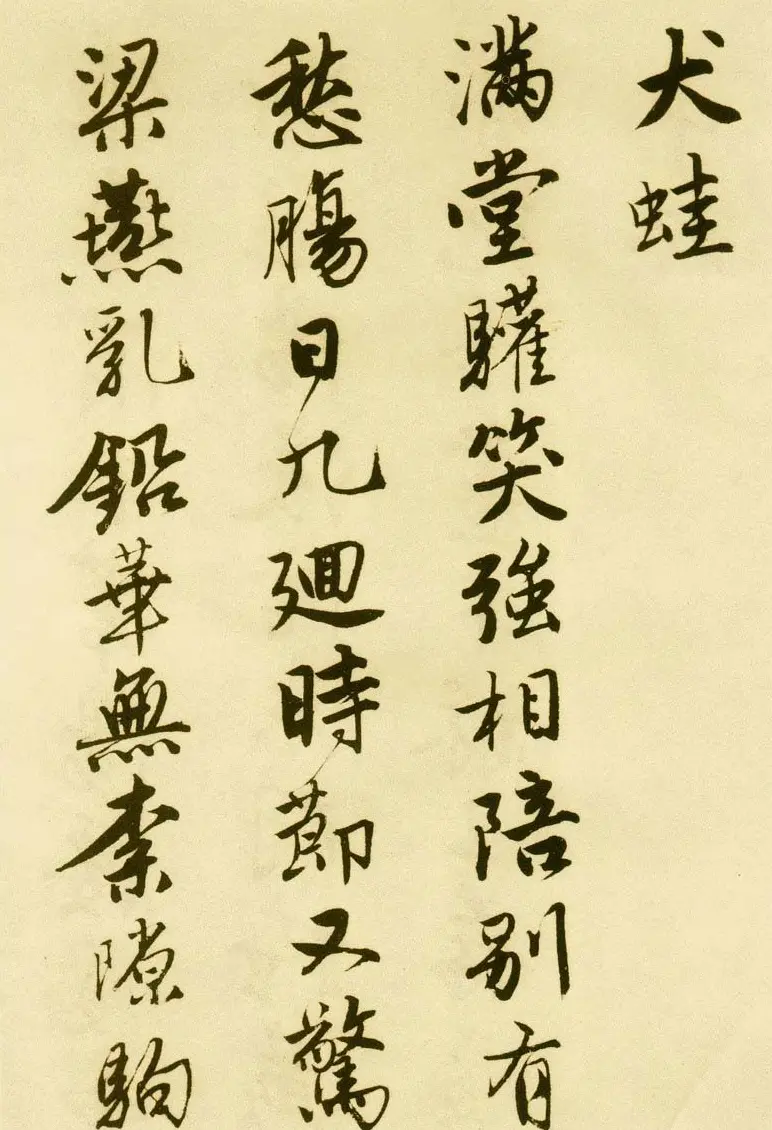 犬蛙
滿堂驩笑強相陪別有
愁腸日九迴時節又驚
梁燕乳鉛華無柰隙駒